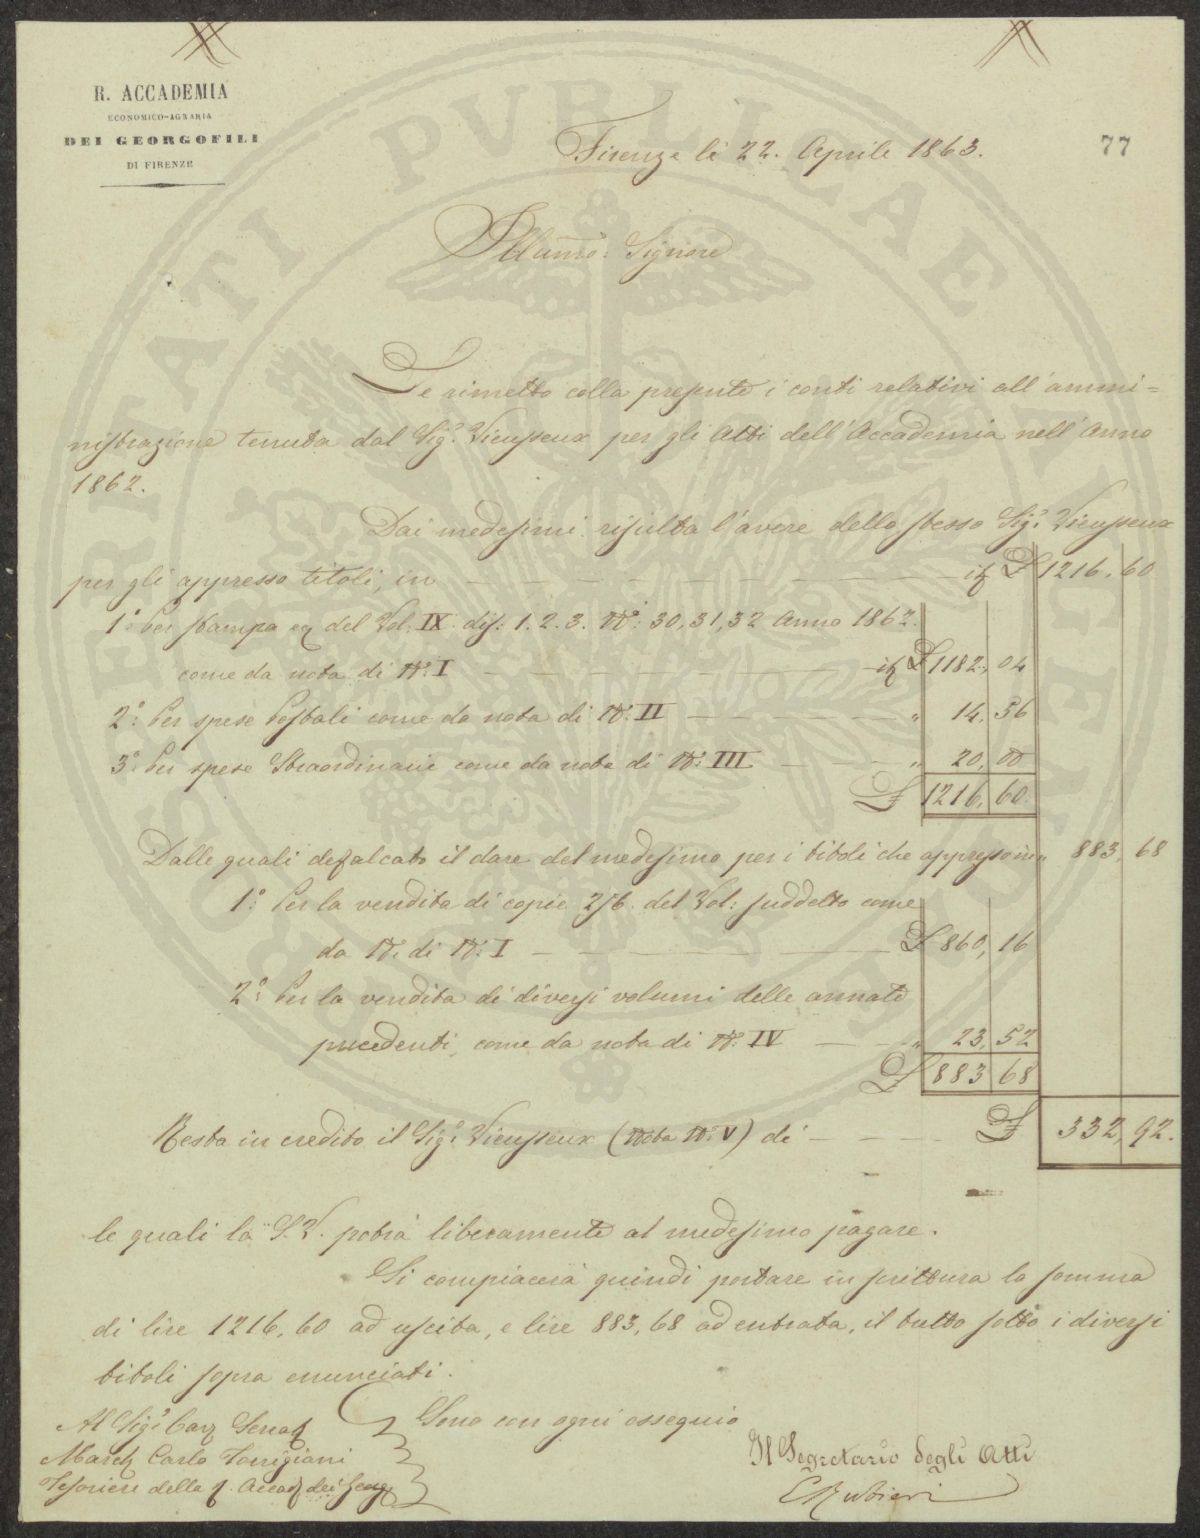 R. ACCADEMIA
ECONOMICO-AGRARIA
DEI GEORGOFILI
DI FIRENZE
Firenze li 22. Aprile 1863.
77
Illumo: Signore
Le rimetto colla presente i conti relativi all'ammi=
nistrazione tenuta dal Sigr. Vieusseux per gli Atti dell'Accademia nell'Anno
1862.
Dai medesimi risulta l'avere dello stesso Sigr. Vieusseux
per gli appresso titoli, in — it £ 1216. 60
1° Per stampa del Vol: IX. dis: 1. 2. 3. N°: 30, 31, 32 Anno 1862.
come da nota di N°: I — it £ 1182, 04
2°: Per spese Postali come da nota di N°: II — " 14. 56
3°: Per spese Straordinarie come da nota di N°: III — " 20, 00
£ 1216, 60.
Dalle quali defalcato il dare del medesimo per i titoli che appresso in " 883, 68
1°: Per la vendita di copie 256. del Vol: suddetto come
da N. di N°: I — £ 860, 16
2°: Per la vendita di diversi volumi delle annate
precedenti, come da nota di N°: IV — " 23, 52
£ 883 68
Resta in credito il Sigr. Vieusseux (Nota N°: V) di — £ 332, 92.
le quali la S. V. potrà liberamente al medesimo pagare.
Si compiacerà quindi portare in scrittura la somma
di lire 1216, 60 ad uscita, e lire 883, 68 ad entrata, il tutto sotto i diversi
titoli sopra enunciati.
Sono con ogni ossequio
Al Sigr. Cav Senat
March Carlo Torrigiani
Tesoriere della R. Accad dei Georg
Il Segretario degli Atti
E Rubieri
PROSPERITATI PUBLICAE AUGENDAE